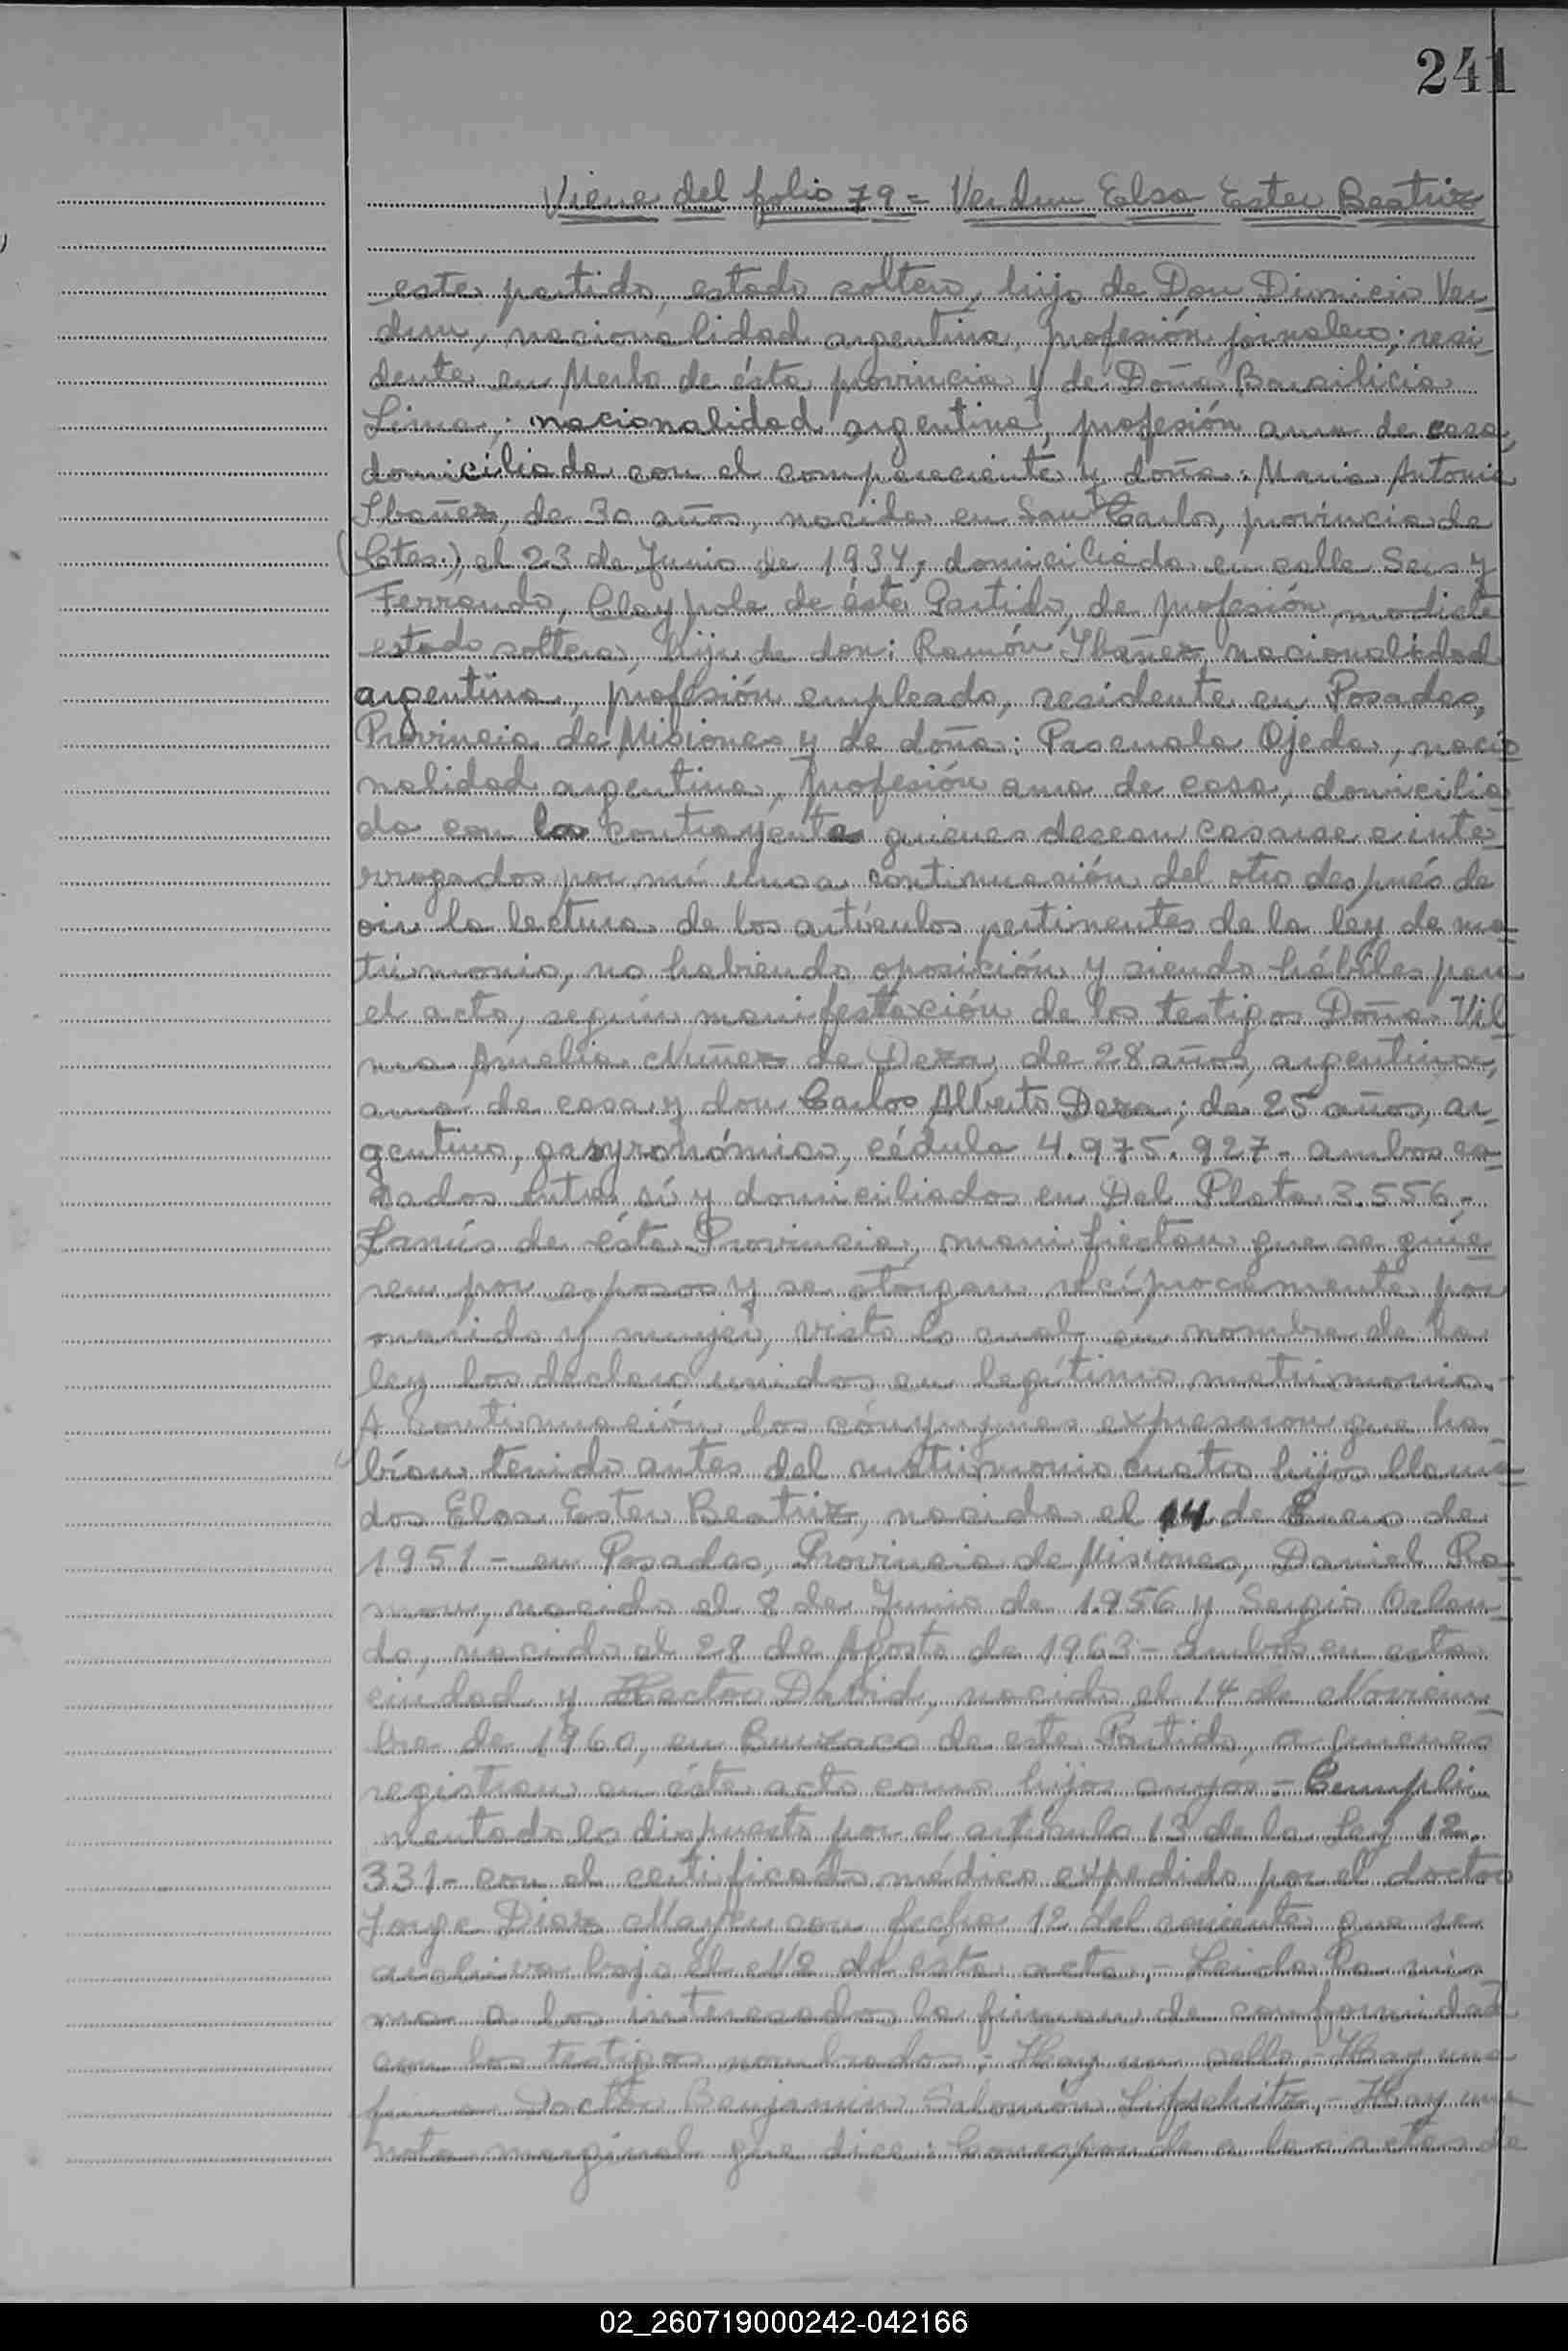 241
Viene del folio 79 = Verdun Elsa Ester Beatriz
este partido, estado soltero, hijo de Don Dionicio Ver
dun, nacionalidad argentina, profesión jornalero; resi
dente en Merlo de ésta provincia y de Doña Basilicia
Lima, nacionalidad argentina, profesión ama de casa,
domiciliada con el compareciente y doña: Maria Antonia
Ibañez, de 30 años, nacida en San Carlos, provincia de
(Ctes.), el 23 de Junio de 1934, domiciliada en calle Seis y
Ferrando, Claypole de éste Partido, de profesión modista
estado soltera, hija de don: Ramón Ibañez, nacionalidad
argentina, profesión empleado, residente en Posadas,
Provincia de Misiones y de doña: Pascuala Ojeda, nacio
nalidad argentina, profesión ama de casa, domicilia
da con la contrayente quienes desean casarse e inte
rrogados por mí uno a continuación del otro después de
oir la lectura de los artículos pertinentes de la ley de ma
trimonio, no habiendo oposición y siendo hábiles para
el acto, según manifestación de los testigos Doña Vil
ma Amelia Nuñez de Deza, de 28 años, argentina,
ama de casa y don Carlos Alberto Deza; de 25 años, ar
gentino, gastronómico, cédula 4.975.927- ambos ca
sados entre sí y domiciliados en Del Plata 3.556-
Lanús de ésta Provincia, manifiestan que se quie
ren por esposos y se otorgan recíprocamente por
marido y mujer, visto lo cual, en nombre de la
ley los declaro unidos en legítimo matrimonio.-
A continuación los cónyuges expresaron que ha
bían tenido antes del matrimonio cuatro hijos llama
dos Elsa Ester Beatriz, nacida el 14 de Enero de
1951 - en Posadas, Provincia de Misiones, Daniel Ra
mon, nacido el 8 de Junio de 1956 y Sergio Orlan
do, nacido el 28 de Agosto de 1963 - ambos en esta
ciudad y Hector David, nacido el 14 de Noviem
bre de 1960, en Burzaco de este Partido, a quienes
registran en éste acto como hijos suyos - Cumpli
mentado lo dispuesto por el artículo 13 de la Ley 12.
331- con el certificado médico expedido por el doctor
Jorge Diaz con fecha 12 del corriente que se
archiva bajo el Nº de ésta acta.- Leida la mis
ma a los interesados la firman de conformidad
con los testigos nombrados.- Hay un sello - Hay una
firma Doctor Benjamin Salomón Lifschitz.- Hay una
nota marginal que dice: Corresponde a las actas de
02_260719000242-042166